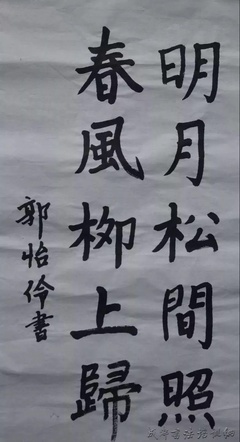 明月松間照
春風柳上歸
郭怡伶書